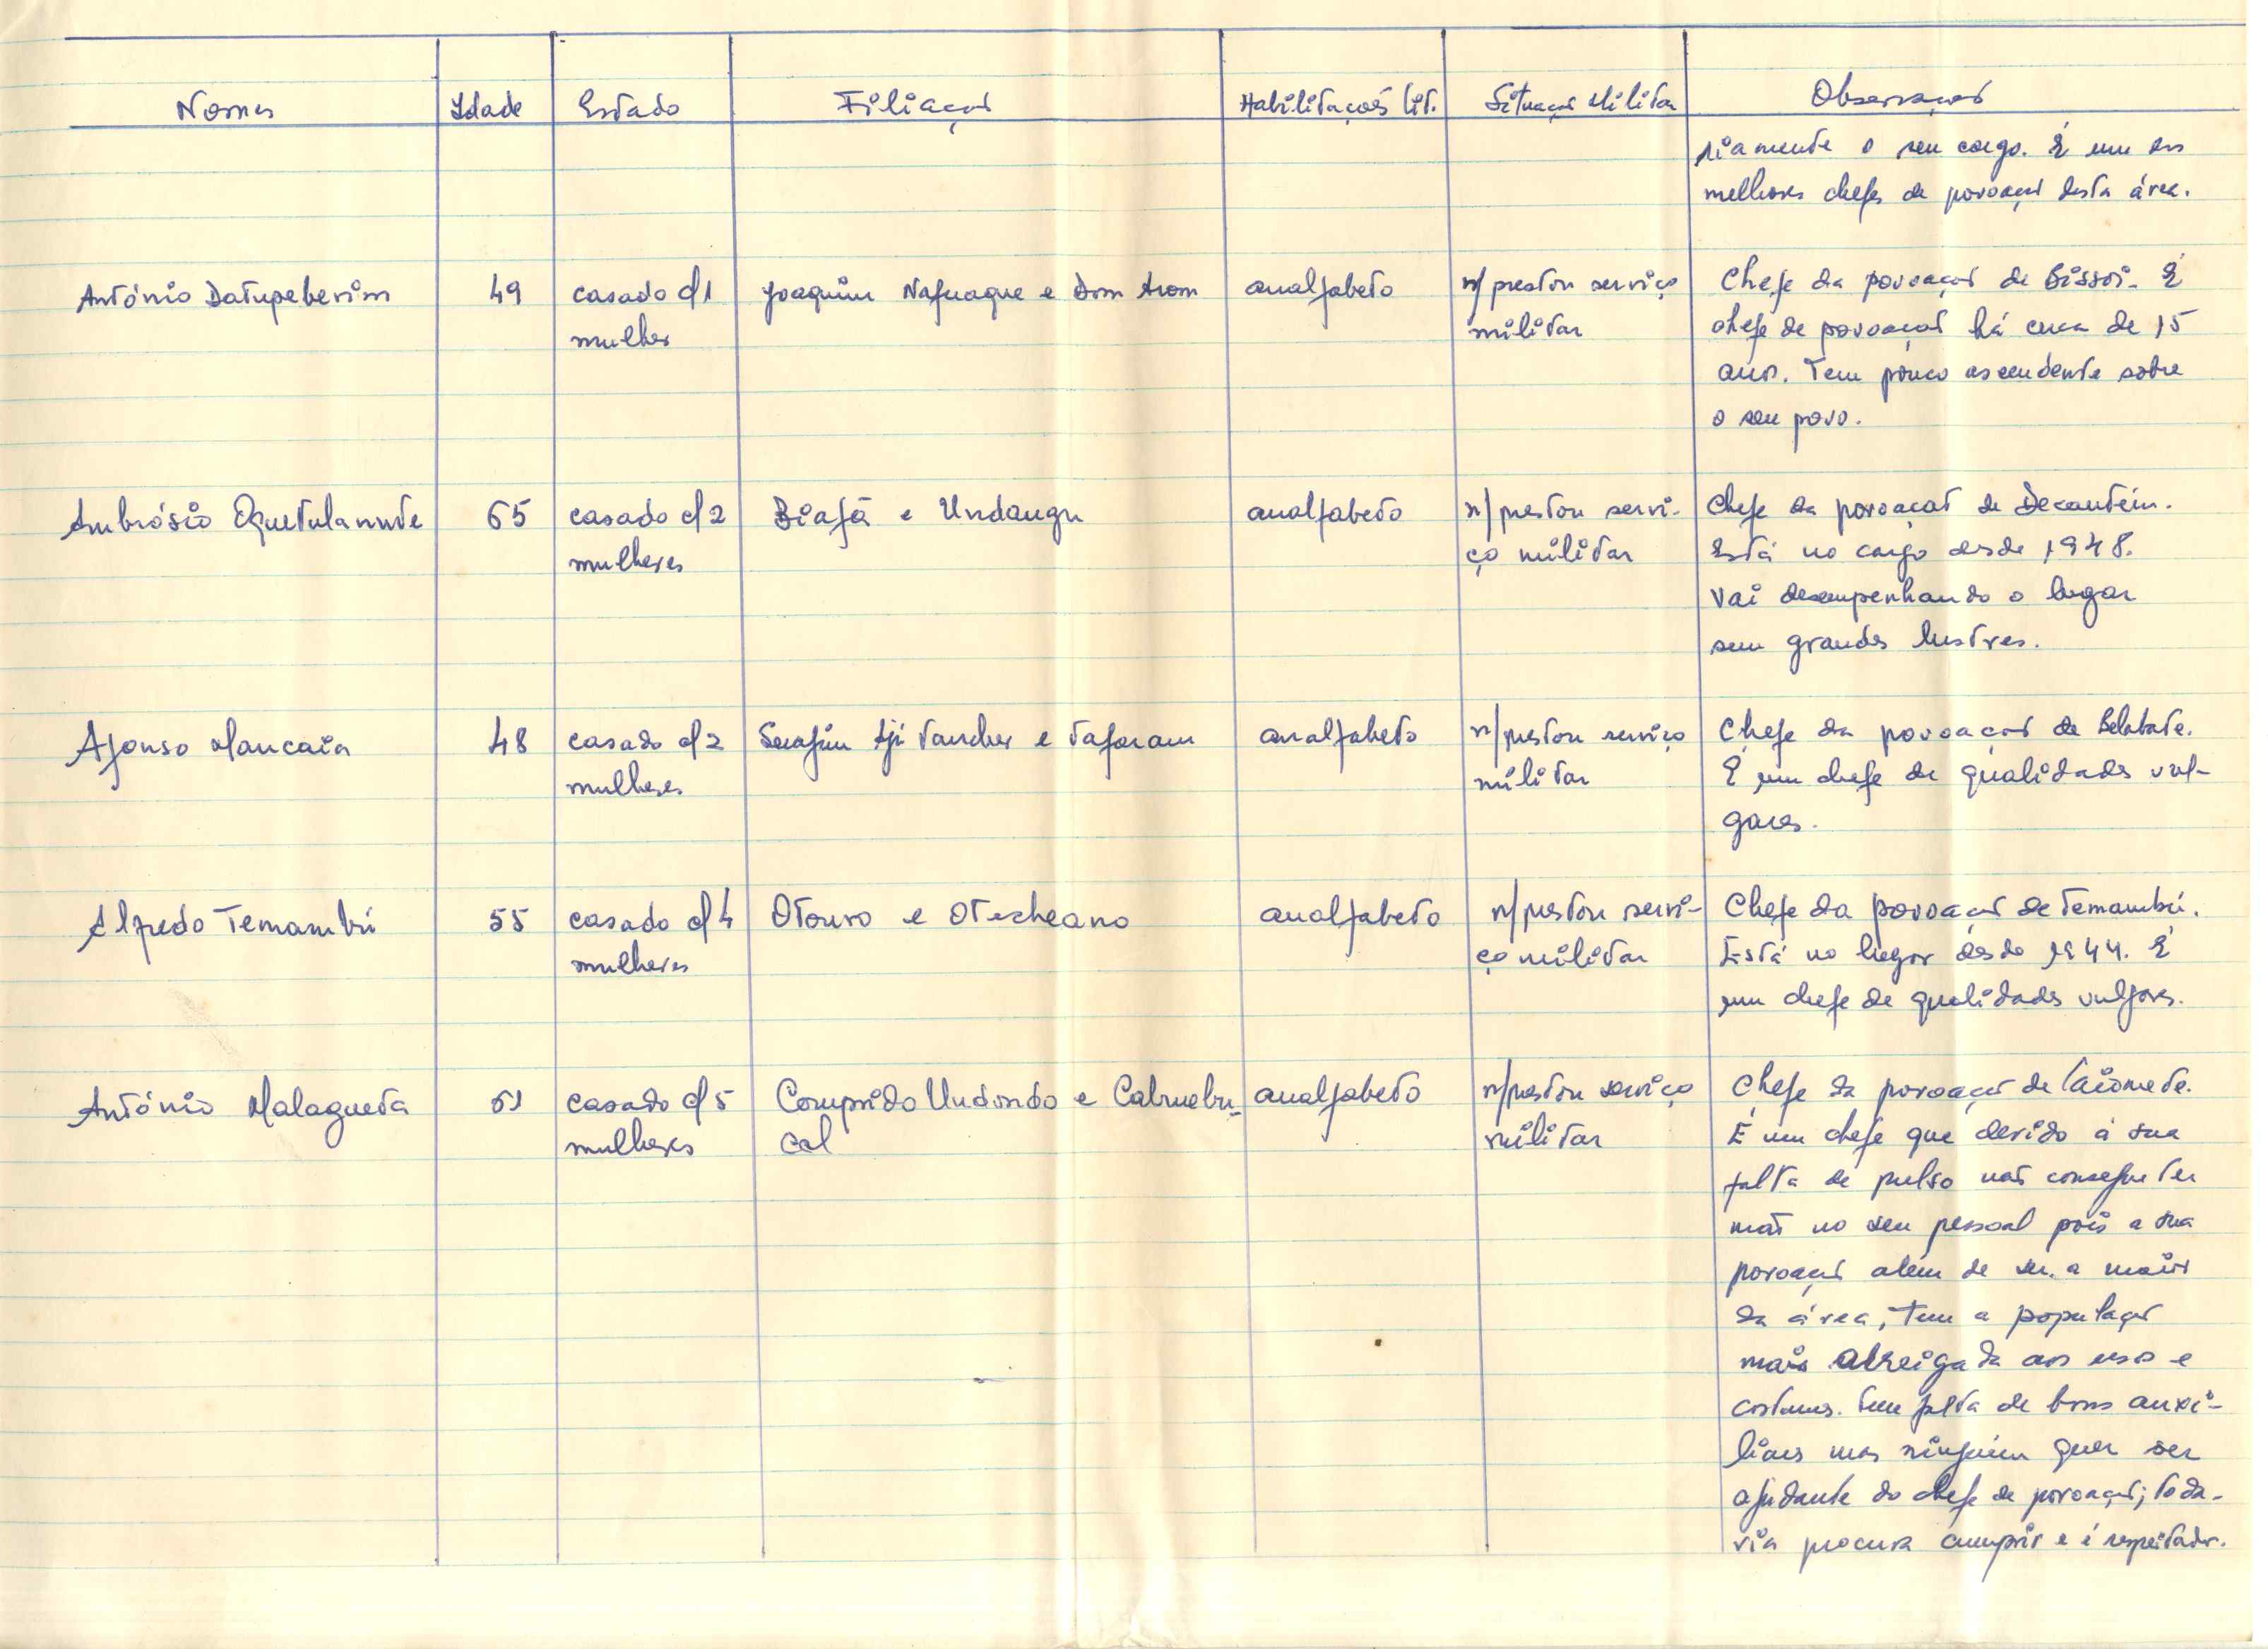 Nomes Idade Estado Filiação Habilitações Lit. Situação Militar Observações
riamente o seu cargo. É um dos
melhores chefes de povoação desta área.
António Datupeberim 49 casado c/1 Joaquim Nafuaque e Dom Arom analfabeto n/ prestou serviço Chefe da povoação de Bissoi. É
mulher militar chefe de povoação há cerca de 15
anos. Tem pouco ascendente sobre
o seu povo.
Ambrósio 65 casado c/2 Biafá e Undaugu analfabeto n/ prestou servi- Chefe da povoação de Decantéim.
mulheres ço militar Está no cargo desde 1948.
Vai desempenhando o lugar
sem grandes lustres.
Afonso Mancaia 48 casado c/2 Serafim e Tafaram analfabeto n/ prestou serviço Chefe da povoação de Belabate.
mulheres militar É um chefe de qualidades vul-
gares.
Alfredo Temambú 55 casado c/4 Otouro e Otecheano analfabeto n/ prestou servi- Chefe da povoação de Temambú.
mulheres ço militar Está no lugar desde 1944. É
um chefe de qualidades vulgares.
António Malagueta 61 casado c/5 Comprido Undondo e Cabuebu- analfabeto n/ prestou serviço Chefe da povoação de Caiomete.
mulheres cal militar É um chefe que devido à sua
falta de pulso não consegue ter
mão no seu pessoal pois a sua
povoação além de ser a maior
da área, tem a população
mais arreigada aos usos e
costumes. Tem falta de bons auxi-
liares mas ninguém quer ser
ajudante do chefe de povoação; toda-
via procura cumprir e é respeitador.